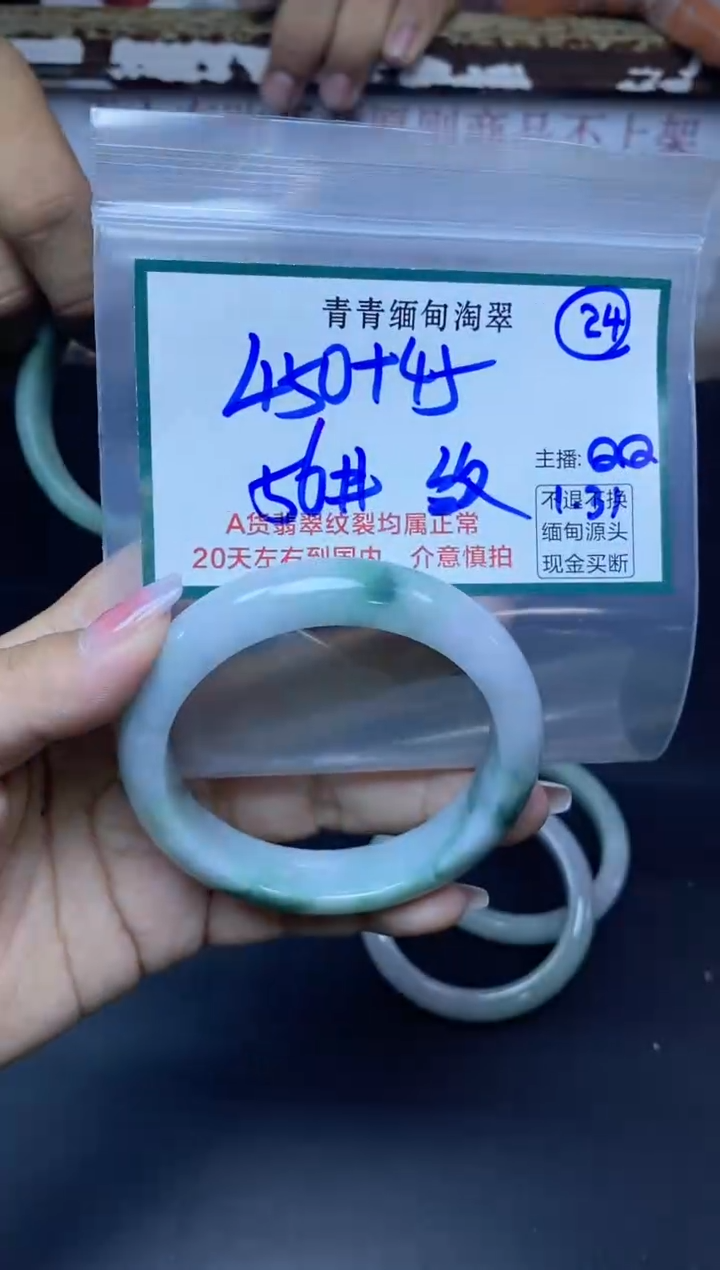 青青缅甸淘翠
24
450+45
56# 纹
主播: QQ
1.31
不退不换
缅甸源头
现金买断
A货翡翠纹裂均属正常
20天左右到国内 介意慎拍